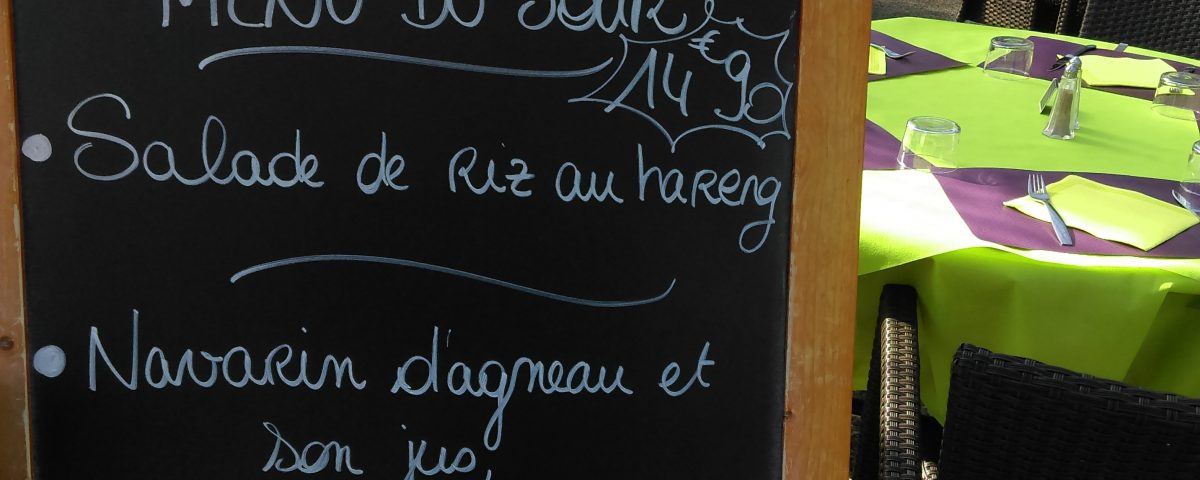 MENU DU JOUR
14€90
Salade de Riz au hareng
Navarin d'agneau et
son jus,